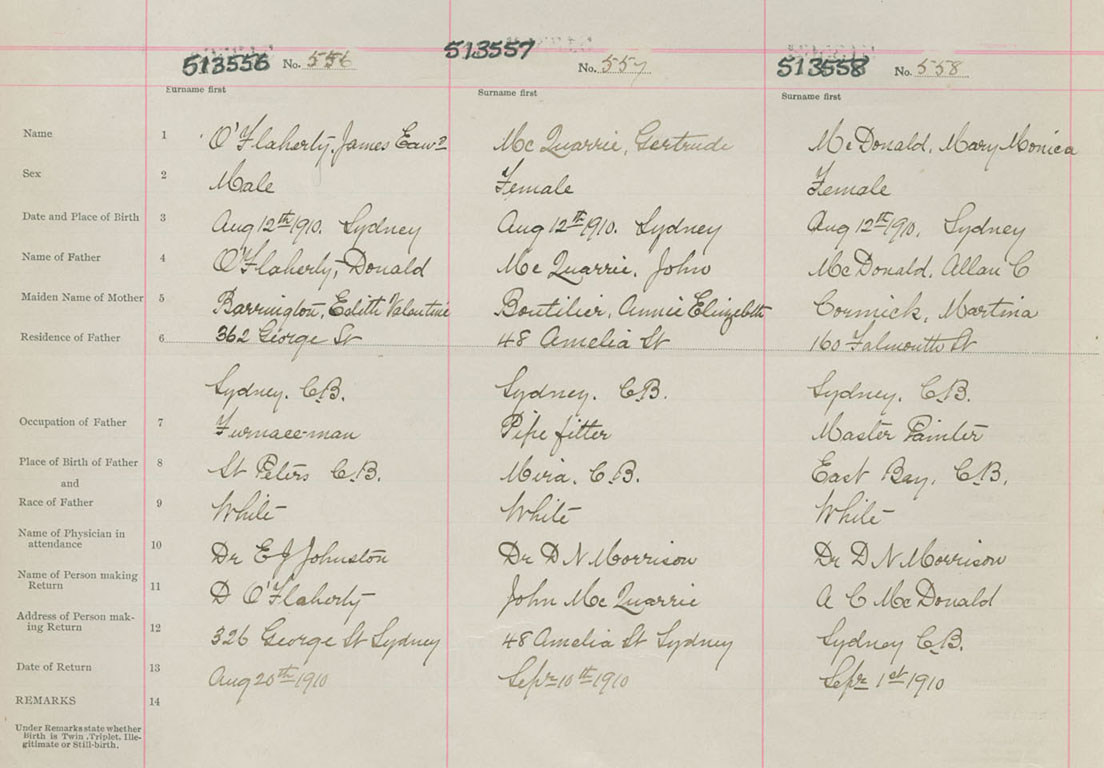 513556 No. 556 513557 No. 557 513558 No. 558
Surname first Surname first Surname first
Name 1 O'Flaherty, James Edwd Mc Quarrie, Gertrude McDonald, Mary Monica
Sex 2 Male Female Female
Date and Place of Birth 3 Aug 12th 1910. Sydney Aug 12th 1910. Sydney Aug 12th 1910. Sydney
Name of Father 4 O'Flaherty, Donald Mc Quarrie, John McDonald, Allan C
Maiden Name of Mother 5 Barrington, Edith Valentine Boutilier, Annie Elizebeth Cormick, Martina
Residence of Father 6 362 George St 48 Amelia St 160 Falmouth St
Sydney. C.B. Sydney. C.B. Sydney. C.B.
Occupation of Father 7 Furnace-man Pipe fitter Master Painter
Place of Birth of Father 8 St Peters C.B. Mira, C.B. East Bay, C.B.
and
Race of Father 9 White White White
Name of Physician in
attendance 10 Dr E J Johnston Dr D N Morrison Dr D N Morrison
Name of Person making
Return 11 D O'Flaherty John Mc Quarrie A C McDonald
Address of Person mak-
ing Return 12 326 George St Sydney 48 Amelia St Sydney Sydney C.B.
Date of Return 13 Aug 20th 1910 Sepr 10th 1910 Sepr 1st 1910
REMARKS 14
Under Remarks state whether
Birth is Twin, Triplet, Ille-
gitimate or Still-birth.